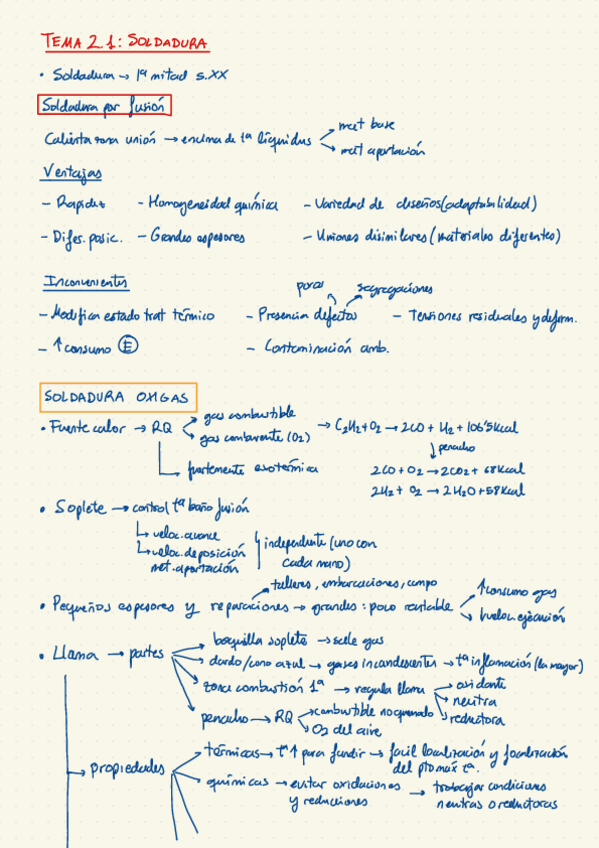 TEMA 2.1: SOLDADURA
• Soldadura → 1ª mitad s.XX
Soldadura por fusión
Calienta zona unión → encima de tª líquidus → met base
→ met aportación
Ventajas
- Rapidez - Homogeneidad química - Variedad de diseños (adaptabilidad)
- Difer. posic. - Grandes espesores - Uniones disimilares (materiales diferentes)
Inconvenientes
poros segregaciones
- Modifica estado trat térmico - Presencia defectos - Tensiones residuales y deform.
- ↑ consumo E - Contaminación amb.
SOLDADURA OXIGAS
gas combustible
• Fuente calor → RQ → C2H2+O2 → 2CO + H2 + 106'5Kcal
gas comburente (O2)
↓ penacho
fuertemente exotérmica 2CO + O2 → 2CO2 + 68Kcal
2H2 + O2 → 2H2O + 58Kcal
• Soplete → control tª baño fusión
↳ veloc. avance
↳ veloc. deposición
met. aportación
independiente (uno con
cada mano)
talleres, embarcaciones, campo
• Pequeños espesores y reparaciones → grandes: poco rentable → ↑ consumo gas
↓ veloc. ejecución
• Llama → partes → boquilla soplete → sale gas
dardo/cono azul → gases incandescentes → tª inflamación (la mayor)
zona combustión 1ª → regula llama → oxidante
neutra
reductora
penacho → RQ → combustible no quemado
O2 del aire
→ propiedades → térmicas → tª ↑ para fundir → fácil localización y focalización
del pto máx tª.
químicas → evitar oxidaciones
y reducciones
→ trabajar condiciones
neutras o reductoras